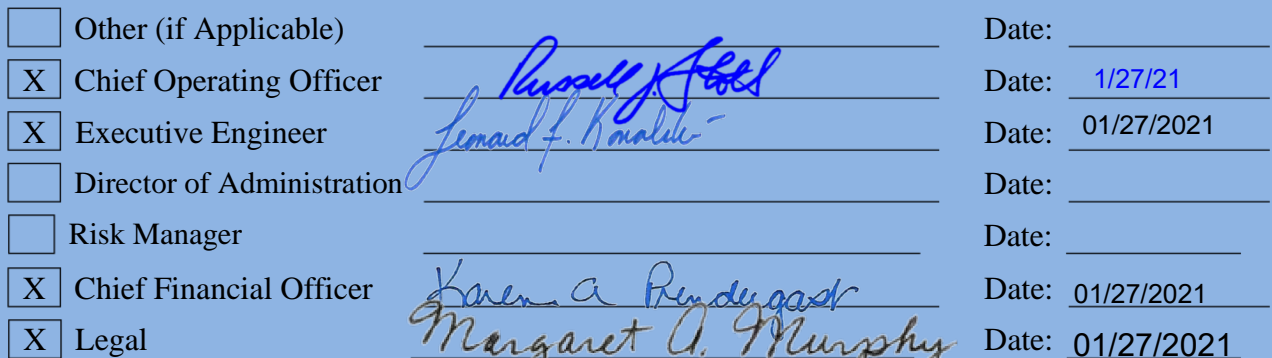 Other (if Applicable) Date:
X Chief Operating Officer Russell J. Date: 1/27/21
X Executive Engineer Date: 01/27/2021
Director of Administration Date:
Risk Manager Date:
X Chief Financial Officer Karen A Prendergast Date: 01/27/2021
X Legal Margaret A. Murphy Date: 01/27/2021